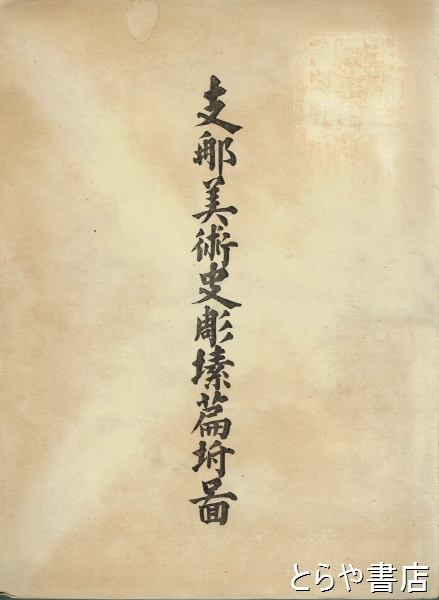 支那美術史彫塑篇坿啚
とらや書店